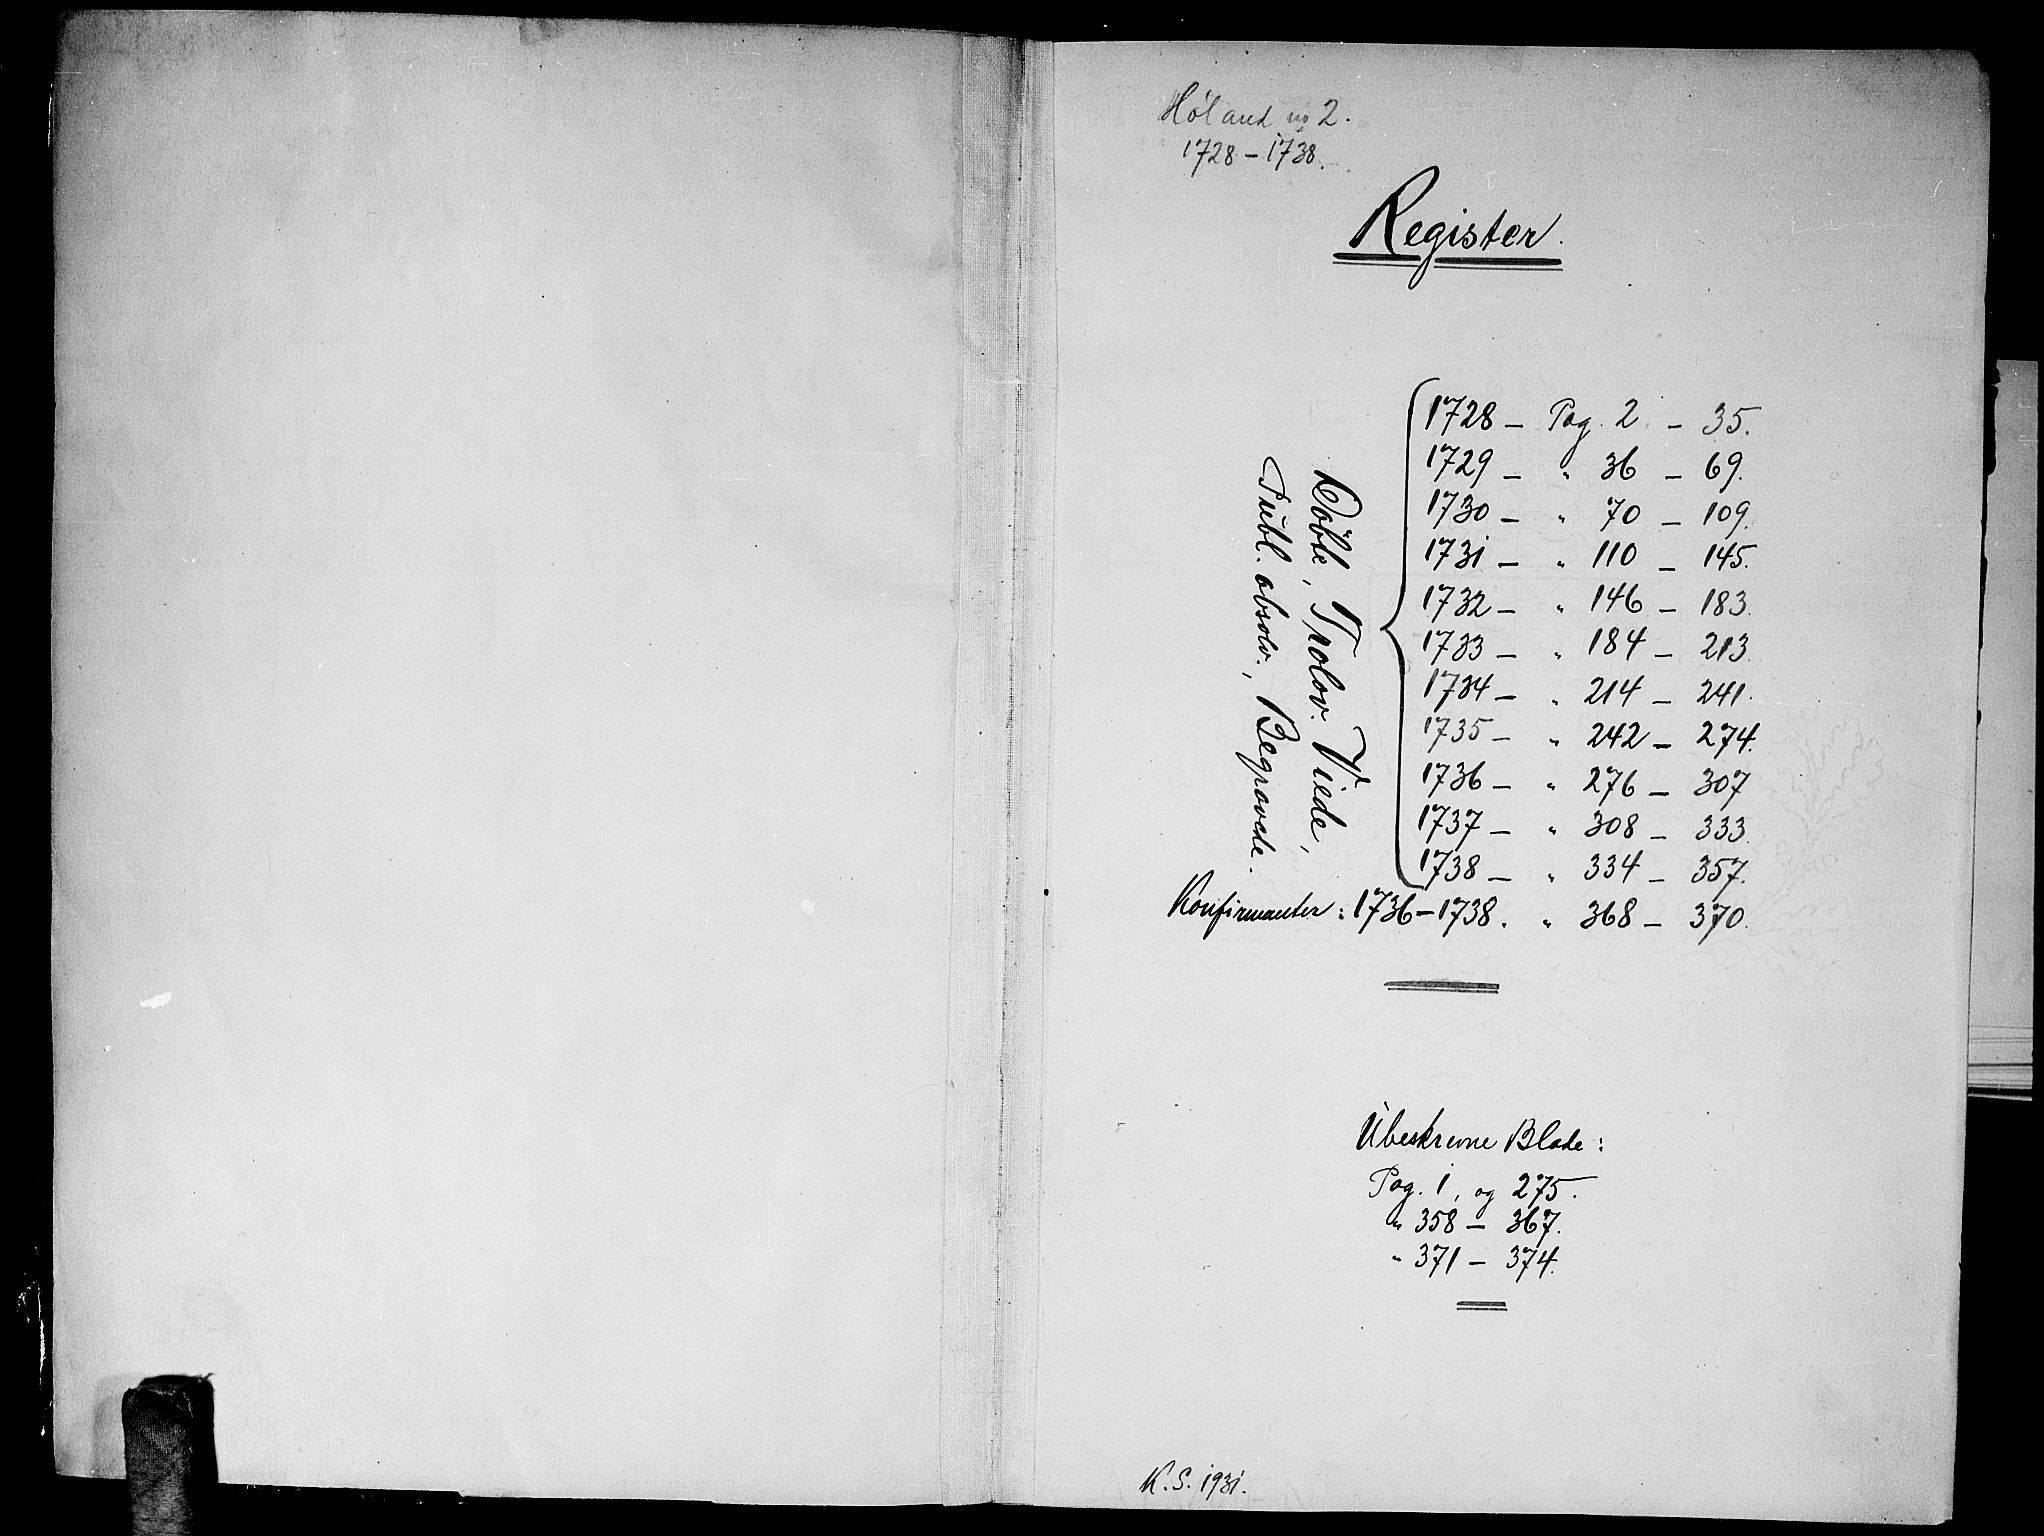 Høland no 2.
1728 - 1738.
Register.
Döbte, Trolov. Viede,
Publ. absolv., Begravede.
1728 - Pag. 2 - 35.
1729 - " 36 - 69.
1730 - " 70 - 109.
1731 - " 110 - 145.
1732 - " 146 - 183.
1733 - " 184 - 213.
1734 - " 214 - 241.
1735 - " 242 - 274.
1736 - " 276 - 307
1737 - " 308 - 333.
1738 - " 334 - 357.
Konfirmanter: 1736-1738. " 368 - 370.
Ubeskrevne Blade:
Pag. 1, og 275.
" 358 - 367.
" 371 - 374.
K. S. 1931.